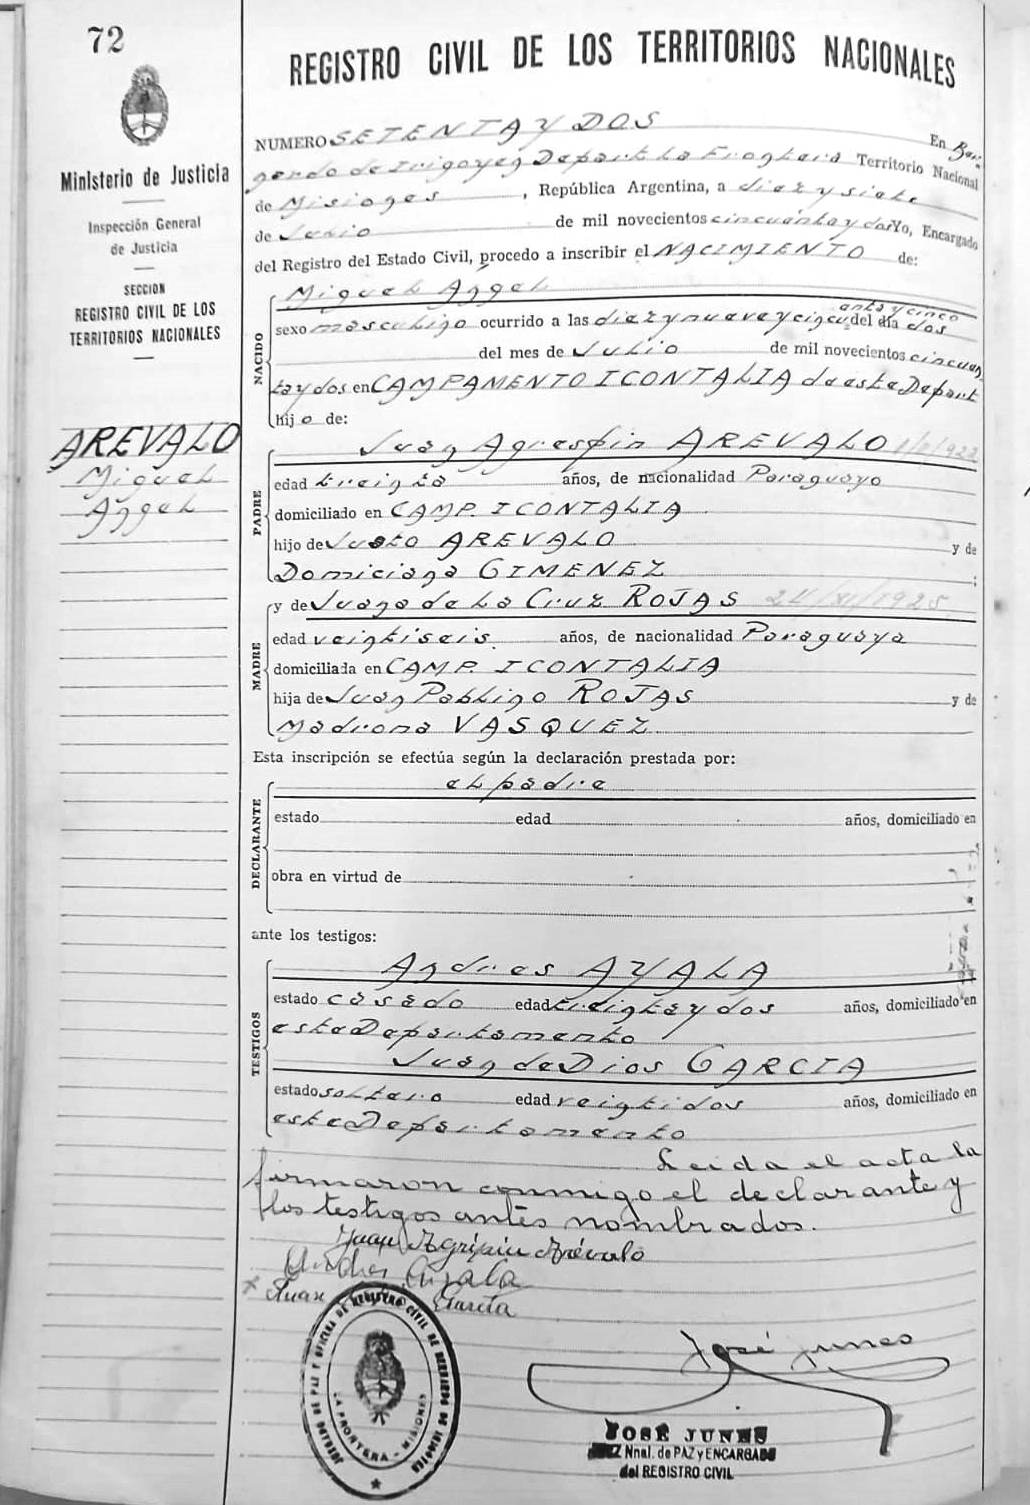 72
REGISTRO CIVIL DE LOS TERRITORIOS NACIONALES
Ministerio de Justicia
Inspección General
de Justicia
SECCION
REGISTRO CIVIL DE LOS
TERRITORIOS NACIONALES
AREVALO
Miguel
Angel
NUMERO SETENTA Y DOS En Ber-
nardo de Irigoyen Depart. La Frontera Territorio Nacional
de Misiones, República Argentina, a diez y siete
de Julio de mil novecientos cincuenta y dos Yo, Encargado
del Registro del Estado Civil, procedo a inscribir el NACIMIENTO de:
NACIDO
Miguel Angel
sexo masculino ocurrido a las diez y nueve y cincuenta y cinco del día dos
del mes de Julio de mil novecientos cincuen
ta y dos en CAMPAMENTO ICONTALIA de este Depart
hijo de:
PADRE
Juan Agrespin AREVALO 1/8/922
edad treinta años, de nacionalidad Paraguayo
domiciliado en CAMP. ICONTALIA
hijo de Justo AREVALO y de
Domiciana GIMENEZ ;
MADRE
y de Juana de La Cruz ROJAS 24/XI/1925
edad veintiseis años, de nacionalidad Paraguaya
domiciliada en CAMP. ICONTALIA
hija de Juan Pablino ROJAS y de
Madrona VASQUEZ
Esta inscripción se efectúa según la declaración prestada por:
DECLARANTE
el padre
estado edad años, domiciliado en
obra en virtud de
ante los testigos:
TESTIGOS
Andres AYALA
estado casado edad treinta y dos años, domiciliado en
este Departamento
Juan de Dios GARCIA
estado soltero edad veintidos años, domiciliado en
este Departamento
Leida el acta la
firmaron conmigo el declarante y
los testigos antes nombrados.
Juan Agripin Arévalo
Andres Ayala
x Juan Garcia
JUZGADO DE PAZ Y OFICINA DE REGISTRO CIVIL DE BERNARDO DE IRIGOYEN
LA FRONTERA - MISIONES
José Junes
JOSÉ JUNES
JUEZ Nnal. de PAZ y ENCARGADO
del REGISTRO CIVIL